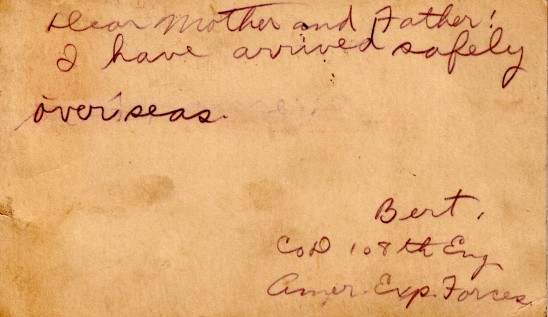 Dear Mother and Father!
I have arrived safely
overseas.
Bert.
Co D 108th Eng
Amer. Exp. Forces